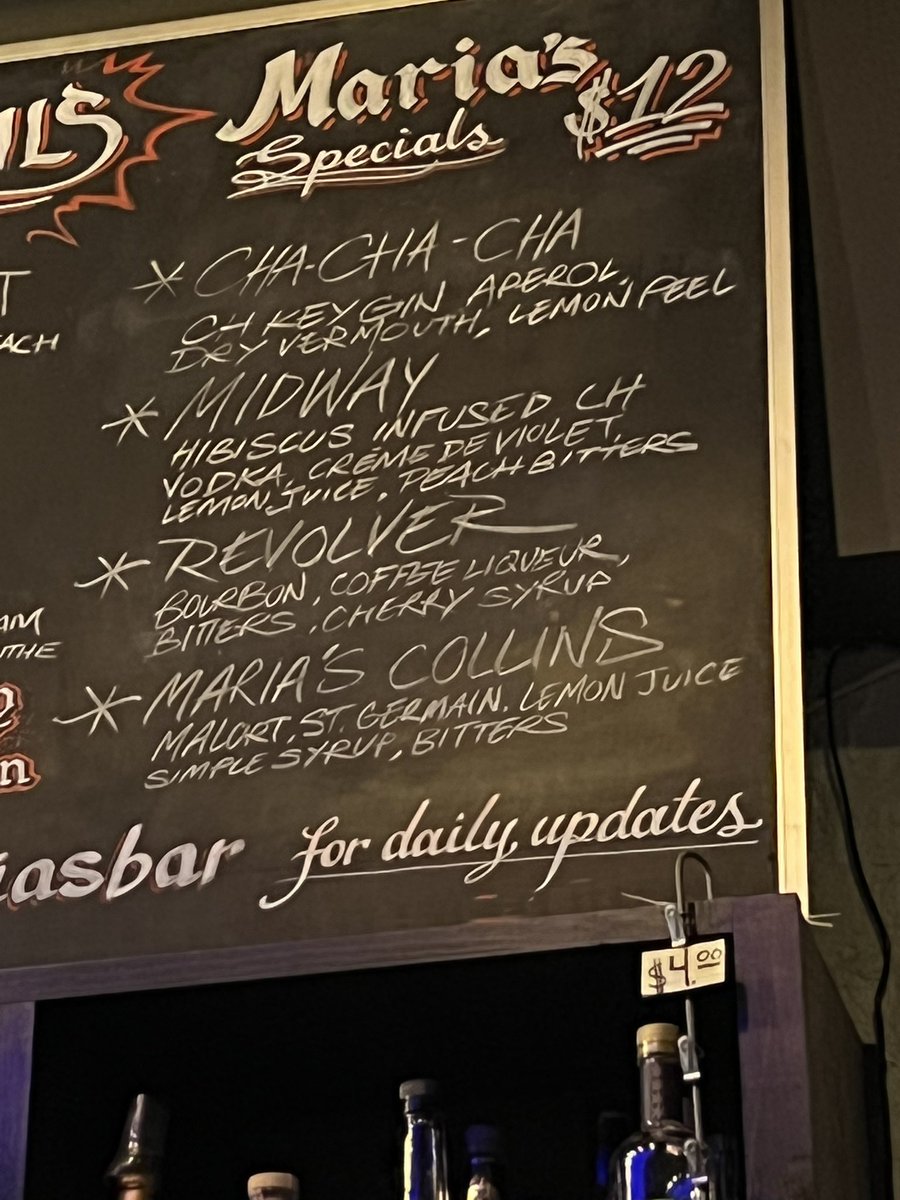 Maria's
Specials
$12
* CHA-CHA-CHA
CH KEY GIN APEROL,
DRY VERMOUTH, LEMON PEEL
* MIDWAY
HIBISCUS INFUSED CH
VODKA, CRÈME DE VIOLET,
LEMON JUICE, PEACH BITTERS
* REVOLVER
BOURBON, COFFEE LIQUEUR,
BITTERS, CHERRY SYRUP
* MARIA'S COLLINS
MALORT, ST. GERMAIN, LEMON JUICE
SIMPLE SYRUP, BITTERS
iasbar for daily updates
$4.00